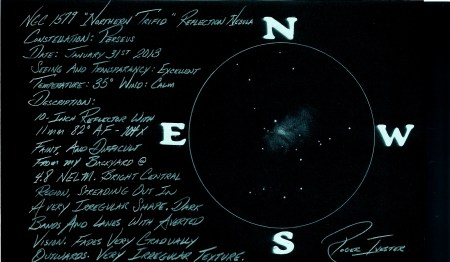 NGC 1579 "Northern Trifid" Reflection Nebula
Constellation: Perseus
Date: January 31st 2013
Seeing And Transparancy: Excellent
Temperature: 35° Wind: Calm
Description:
10-Inch Reflector With
11mm 82° AF - 104X
Faint, And Difficult
From my Backyard @
4.8 NELM. Bright Central
Region, Spreading Out In
A very Irregular Shape. Dark
Bands And Lanes, With Averted
Vision. Fades Very Gradually
Outwards. Very Irregular Texture.
N
E
W
S
Roger Ivester